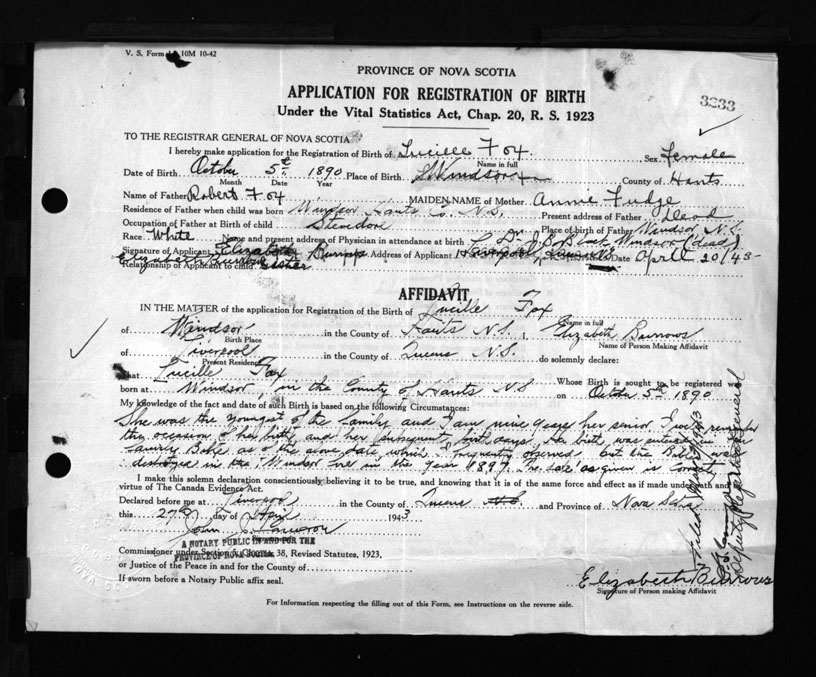 V. S. Form 10M 10-42
PROVINCE OF NOVA SCOTIA
APPLICATION FOR REGISTRATION OF BIRTH
3233
Under the Vital Statistics Act, Chap. 20, R. S. 1923
TO THE REGISTRAR GENERAL OF NOVA SCOTIA
I hereby make application for the Registration of Birth of Lucille Fox Sex Female
Name in full
Date of Birth October 5th 1890 Place of Birth Windsor County of Hants
Month Date Year
Name of Father Robert Fox MAIDEN NAME of Mother Annie Fudge
Residence of Father when child was born Windsor Hants Co. N.S. Present address of Father Dead
Occupation of Father at Birth of child Stevedore Place of Birth of Father Windsor N.S.
Race White Name and present address of Physician in attendance at birth Dr. Windsor (dead)
Signature of Applicant Elizabeth Burrows Address of Applicant Liverpool, Queens Date April 20/43
Elizabeth Burrows
Relationship of Applicant to child Sister
AFFIDAVIT
IN THE MATTER of the application for Registration of the Birth of Lucille Fox
Name in full
of Windsor in the County of Hants N.S. I, Elizabeth Burrows
Birth Place Name of Person Making Affidavit
of Liverpool in the County of Queens N.S. do solemnly declare:
Present Residence
That Lucille Fox Whose Birth is sought to be registered was
born at Windsor, in the County of Hants N.S on October 5th 1890
My knowledge of the fact and date of such Birth is based on the following Circumstances:
She was the youngest of the family and I am nine years her senior I well remember
the occasion of her birth and her subsequent birth days, Her birth was entered in our
family Bible as of the above date which I frequently observed but the Bible was
destroyed in the Windsor fire in the year 1897. The date as given is correct
I make this solemn declaration conscientiously believing it to be true, and knowing that it is of the same force and effect as if made under oath and
virtue of The Canada Evidence Act.
Declared before me at Liverpool in the County of Queens and Province of Nova Scotia
this 27th day of April 1943
John
A NOTARY PUBLIC IN AND FOR THE
Commissioner under Section 5, Chapter 38, Revised Statutes, 1923,
PROVINCE OF NOVA SCOTIA
or Justice of the Peace in and for the County of
If sworn before a Notary Public affix seal.
Elizabeth Burrows
Signature of Person making Affidavit
For Information respecting the filling out of this Form, see Instructions on the reverse side.
Filed 1943
Deputy Registrar General